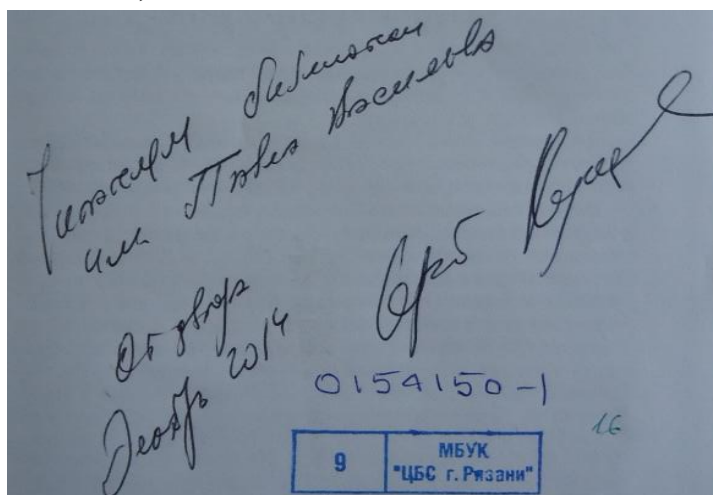 Читателям библиотеки
им. Павла Васильева
От автора
2014
0154150-1
16
9
МБУК
"ЦБС г. Рязани"